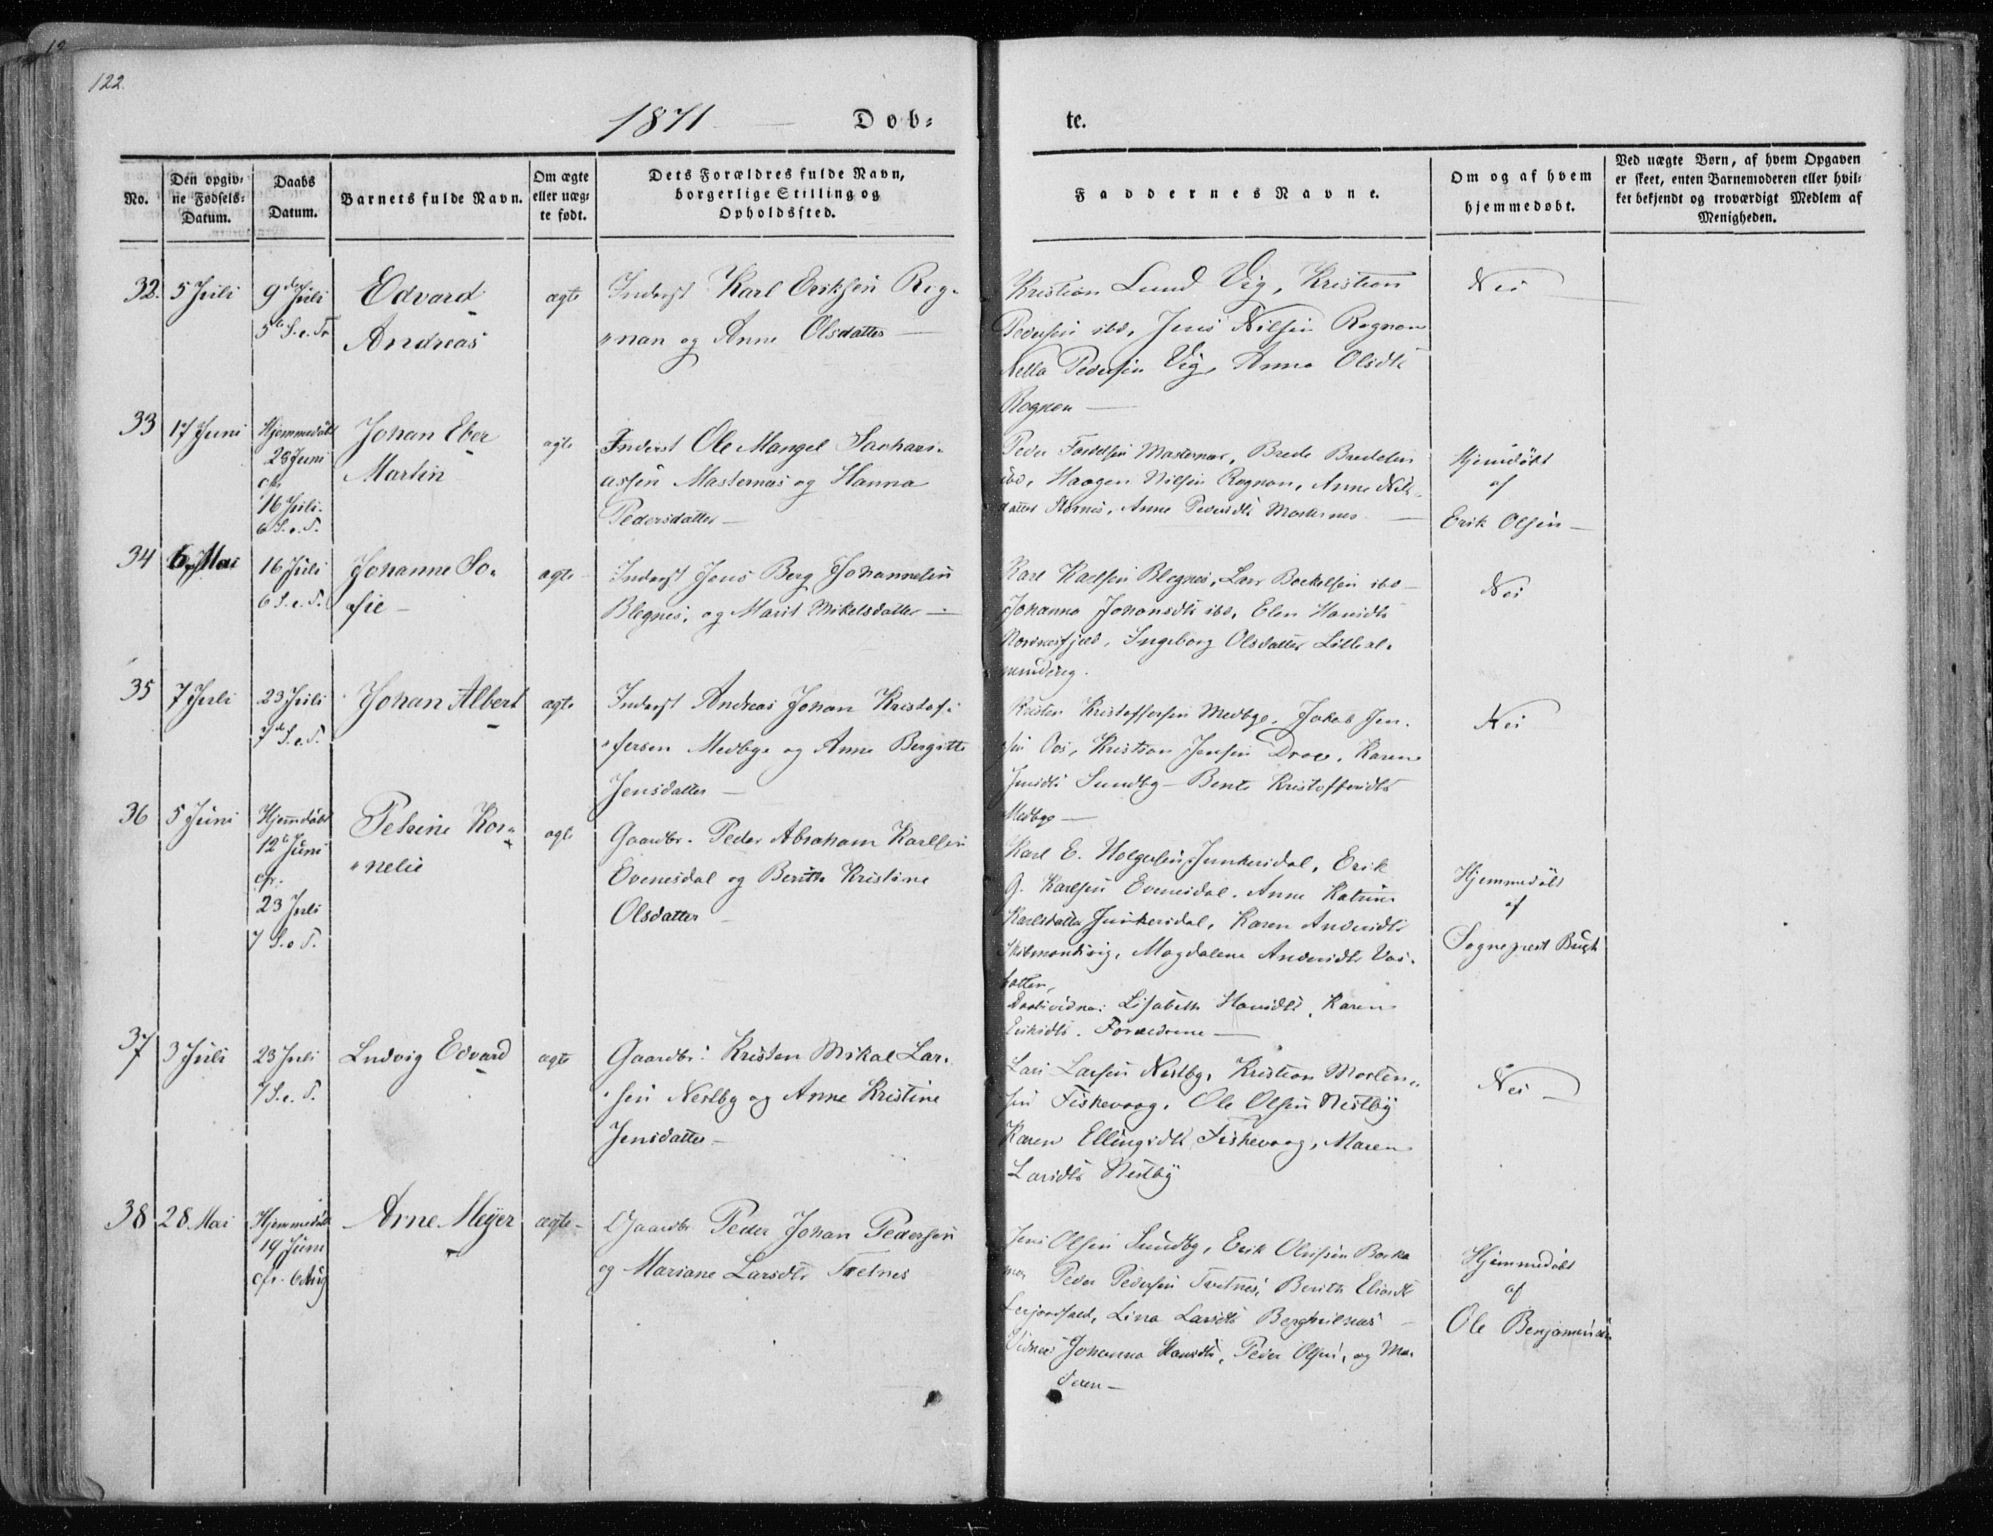 122.
1871 — Døb-
te.
No.
Den opgiv-
ne Fødsels-
Datum.
Daabs
Datum.
Barnets fulde Navn.
Om ægte
eller uæg-
te født.
Dets Forældres fulde Navn,
borgerlige Stilling og
Opholdssted.
Faddernes Navne.
Om og af hvem
hjemmedøbt.
Ved uægte Børn, af hvem Opgaven
er skeet, enten Barnemoderen eller hvil-
ket bekjendt og troværdigt Medlem af
Menigheden.
32.
5 Juli
9de Juli
5te S. e. Tr
Edvard
Andreas
ægte
Inderst Karl Eriksen Rog-
nan og Anne Olsdatter —
Kristian Lund Vig, Kristian
Pedersen ibd, Jens Nilsen Rognan
Nella Pedersen Vig, Anna Olsdtr
Rognan —
Nei
33
17 Juni
Hjemmedøbt
28 Juni
cfr
16 Juli.
6 S. e. T.
Johan Eber
Martin
ægte
Inderst Ole Mangel Sachari-
assen Masternas og Hanna
Pedersdatter —
Peder Masternas, Brede Bredesen
ibd, Haagen Nilsen Rognan, Anne Nils-
datter Stornes, Anne Pedersdtr Masternes —
Hjemdøbt
af
Erik Olsen —
34
6 Mai
16 Juli
6 S. e. T.
Johanne So-
fie —
ægte
Inderst Jens Berg Johannesen
Blegnes, og Marit Mikelsdatter —
Karl Karlsen Blegnes, Lars ibd —
Johanna Johansdtr ibd, Elen Hansdtr
Ingeborg Olsdatter
Nei
35
7 Juli
23 Juli
7de S. e. T.
Johan Albert
ægte
Inderst Andreas Johan Kristof-
fersen Medbye og Anne Bergitte
Jensdatter —
Kristen Kristoffersen Medbye, Jakob Jen-
sen Os, Kristian Jensen Karen
Jensdtr Sundby — Bente Kristoffersdtr
Medbye —
Nei
36
5 Juni
Hjemdøbt
12te Juni
cfr.
23 Juli
7 S. e. T.
Petrine Kor-
nelie
ægte
Gaardbr. Peder Abraham Karlsen
Evenesdal og Berith Kristine
Olsdatter —
Karl E. Holgersen Junkersdal, Erik
G. Karlsen Evenesdal, Anne Katrine
Karlsdatter Junkersdal, Karen Andersdtr
Skibmandsvig, Magdalene Andersdtr Vas-
botten,
Daabsvidner: Lisabeth Hansdtr, Karen
Eriksdtr. Forældrene —
Hjemmedøbt
af
Sogneprest Bugt
37
3 Juli
23 Juli
7 S. e. T.
Ludvig Edvard
ægte
Gaardbr. Kristen Mikal Lar-
sen Nestby og Anne Kristine
Jensdatter —
Lars Larsen Nestby, Kristian Morten-
sen Fiskevaag, Ole Olsen Nestby
Karen Ellingsdtr Fiskevaag, Maren
Larsdtr Nestby
Nei —
38
28 Mai
Hjemmedøbt
19 Juni
cfr. 6 Aug
Arne Meyer
ægte —
Gaardbr. Peder Johan Pedersen
og Mariane Larsdtr Tvetnes
Jens Olsen Sundby, Erik
Peder Pedersen Tvetnes, Berith
Lina Larsdtr —
Vidner Johanna Hansdtr, Peder Olsen, og Mo-
deren —
Hjemmedøbt
af
Ole Benjaminsen